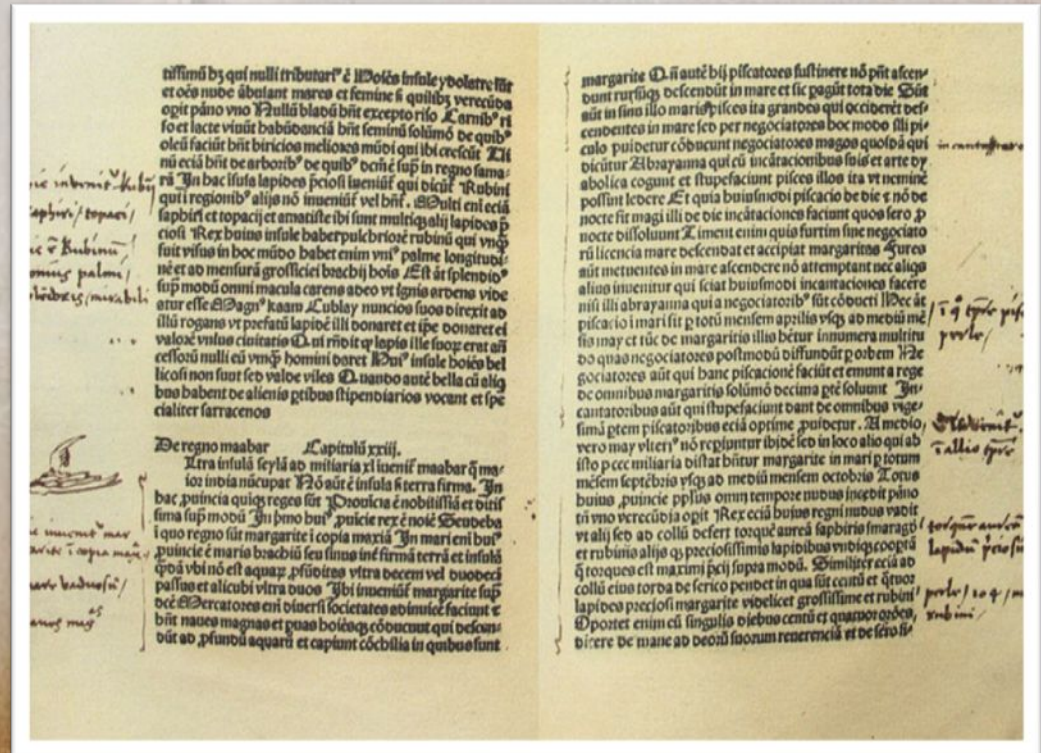 tissimū hȝ qui nulli tributariꝰ ē Hoīes insule ydolatre sūt
et oēs nude ābulant mares et femine sꝫ quilibꝫ verecūda
opit pāno vno Nullū bladū hn̄t excepto riso Carnibꝰ ri
so et lacte viuūt habūdanciā hn̄t seminū solūmō de quibꝰ
oleū faciūt hn̄t biricios meliores mūdi qui ibi crescūt Ui
nū eciā hn̄t de arboribꝰ de quibꝰ dcm̄ ē sup̄ in regno sama
rā In hac īsula lapides p̄ciosi īueniūt̄ qui dicūt̄ Rubini
qui ī regionibꝰ alijs nō īueniūt̄ vel hn̄t̄. Multi eni eciā
saphiri et topacij et amatiste ibi sunt multiqꝫ alij lapides p̄
ciosi Rex huius insule habet pulchriorē rubinū qui vnqꝫ
fuit visus in hoc mūdo habet enim vniꝰ palme longitudi
nē et ad mensurā grossiciei brachij hoīs Est āt splendidꝰ
sup̄ modū omni macula carens adeo vt ignis ardens vide
atur esse Magnꝰ kaam Cublay nuncios suos direxit ad
illū rogans vt prefatū lapidē illi donaret et ip̄e donaret ei
valorē vnius ciuitatis Qui rn̄dit ꝙ lapis ille suoꝝ erat an̄
cessorū nulli eū vnqꝫ homini daret Huiꝰ insule hoiēs bel
licosi non sunt sed valde viles Quando autē bella cū aliq̄
bus habent de alienis ꝑtibus stipendiarios vocant et spe
cialiter sarracenos
De regno maabar Capitulū xxiij.
Ltra insulā seylā ad miliaria xl īuenit̄ maabar q̄ ma-
ior india nūcupat̄ Nō aūt ē insula sꝫ terra firma. In
hac ꝓuincia quiqꝫ reges sūt Prouīcia ē nobilissīa et ditis
sima sup̄ modū In p̄mo huiꝰ ꝓuicie rex ē noīe Seudeba
ī quo regno sūt margarite ī copia maxīa In mari eni huiꝰ
ꝓuincie ē maris brachiū seu sinus int̄ firmā terrā et insulā
q̄ndā vbi nō est aquaꝝ ꝓfūditas vltra decem vel duodecī
passus et alicubi vltra duos Ibi īueniūt̄ margarite sup̄
dc̄e Mercatores eni diuersi societates adinuicē faciunt ⁊
hn̄t naues magnas et ꝑuas hoiēsqꝫ cōducunt qui descen-
dūt ad ꝓfundū aquarū et capiunt cōchilia in quibus sunt
margarite Qn̄ autē hij piscatores sustinere nō pn̄t ascen-
dunt rursūqꝫ descendūt in mare et sic pagūt tota die Sūt
aūt in sinu illo maris pisces ita grandes qui occiderēt des-
cendentes in mare sed per negociatores hoc modo illi pi-
culo puidetur cōducunt negociatores magos quosdā qui
dicūtur Abrayanna qui cū incātacionibus suis et arte dy
abolica cogunt et stupefaciunt pisces illos ita vt neminē
possunt ledere Et quia huiusmodi piscacio de die ⁊ nō de
nocte fit magi illi de die incātaciones faciunt quos sero ꝓ
nocte dissoluunt Timent enim quis furtim sine negociato
rū licencia mare descendat et accipiat margaritas Fures
aūt metuentes in mare ascendere nō attemptant nec aliqs
alius inuenitur qui sciat huiusmodi incantaciones facere
nisi illi abrayanna qui a negociatoribꝰ sūt cōducti Hec āt
piscacio ī mari fit ꝑ totū mensem aprilis vsqꝫ ad mediū mē
sis may et tūc de margaritis illis hētur innumera multitu
do quas negociatores postmodū diffundūt ꝑ orbem Ne
gociatores aūt qui hanc piscacionē faciūt et emunt a rege
de omnibus margaritis solūmō decima ꝑtē soluunt In-
cantatoribus aūt qui stupefaciunt dant de omnibus vige-
simā ꝑtem piscatoribus eciā optime ꝓuidetur. A medio
vero may vlteriꝰ nō repiuntur ibidē sed in loco alio qui ab
isto ꝑ ccc miliaria distat hn̄tur margarite in mari ꝑ totum
mēsem septēbris vsqꝫ ad mediū mensem octobris Totus
huius ꝓuincie pplus omni tempore nudus incedit pāno
tn̄ vno verecūdia opit Rex eciā huius regni nudus vadit
vt alij sed ad collū defert torquē aureā saphiris smaragd
et rubinis alijs qꝫ preciosissimis lapidibus vndiqꝫ coopta
q̄ torques est maximi p̄cij supra modū. Similiter eciā ad
collū eius corda de serico pendet in qua sūt centū et q̄tuor
lapides preciosi margarite videlicet grossissime et rubini
Oportet enim eū singulis diebus centū et quatuor orōes,
dicere de mane ad deorū suorum reuerenciā et de sero si-